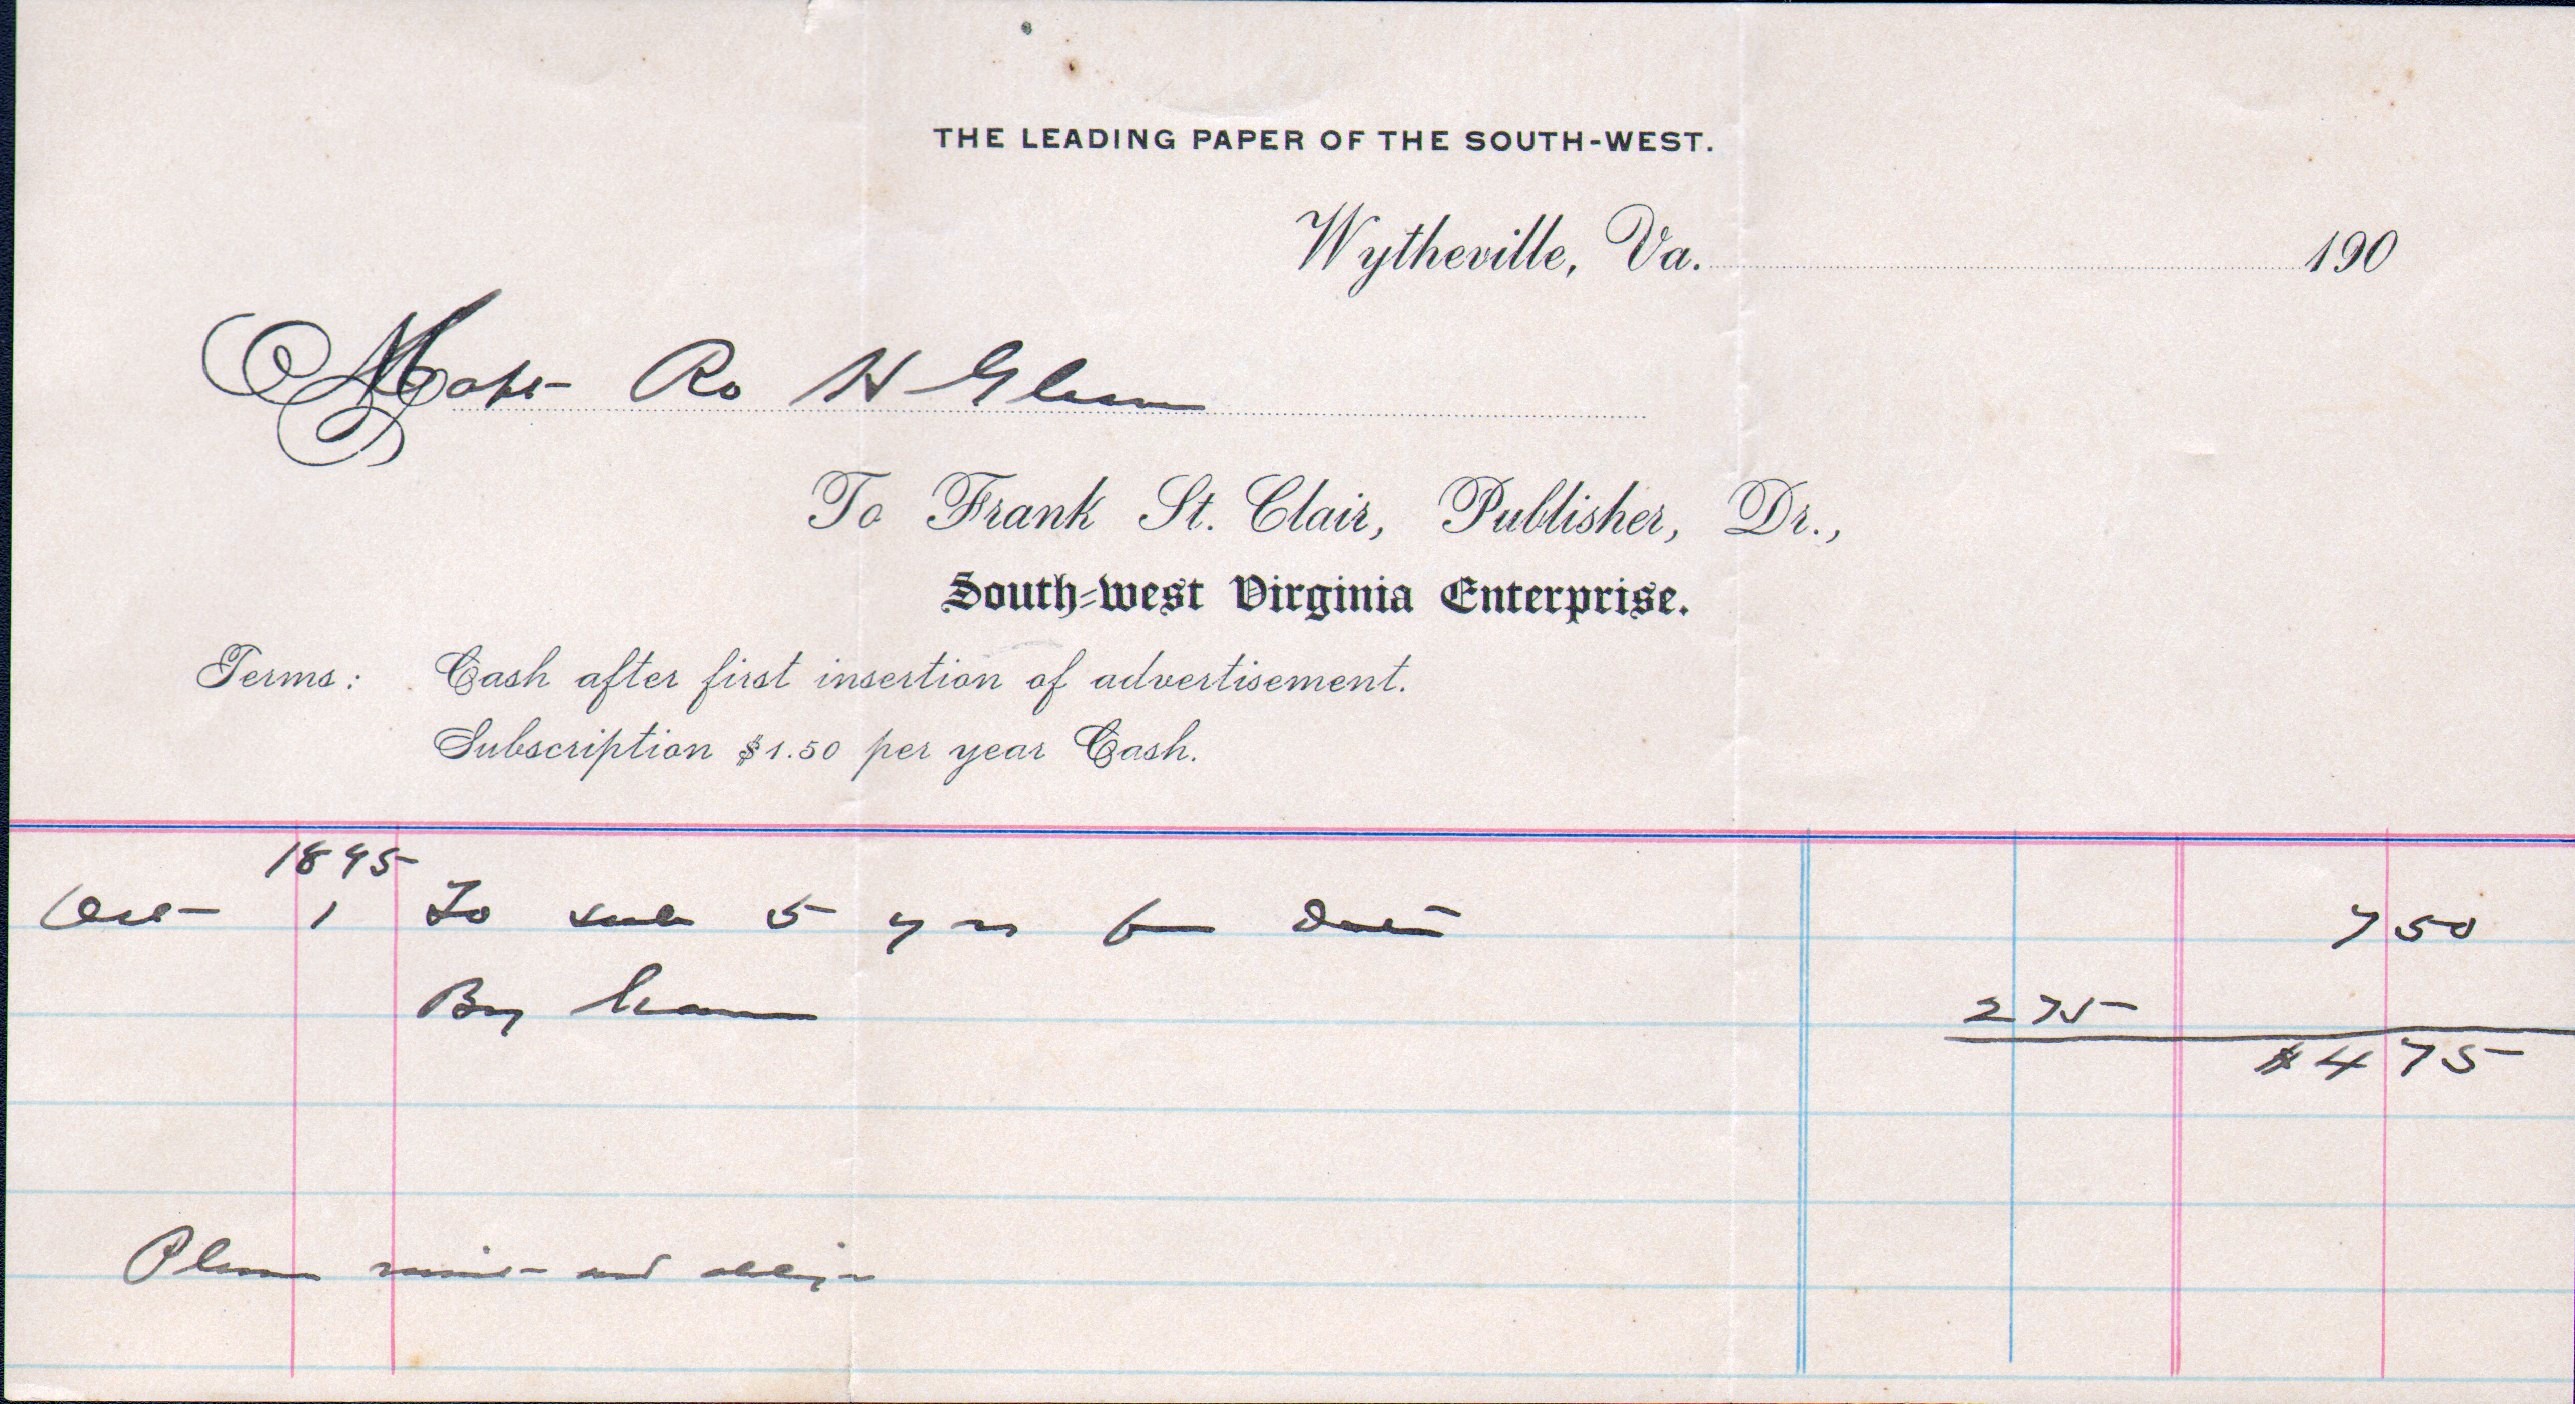 THE LEADING PAPER OF THE SOUTH-WEST.
Wytheville, Va. 190
Capt Ro H
To Frank St. Clair, Publisher, Dr.,
South-west Virginia Enterprise.
Terms: Cash after first insertion of advertisement.
Subscription $1.50 per year Cash.
1895
Oct 1 To sub 5 yrs from Date 7 50
By 2 75
$4 75
Please remit and oblige